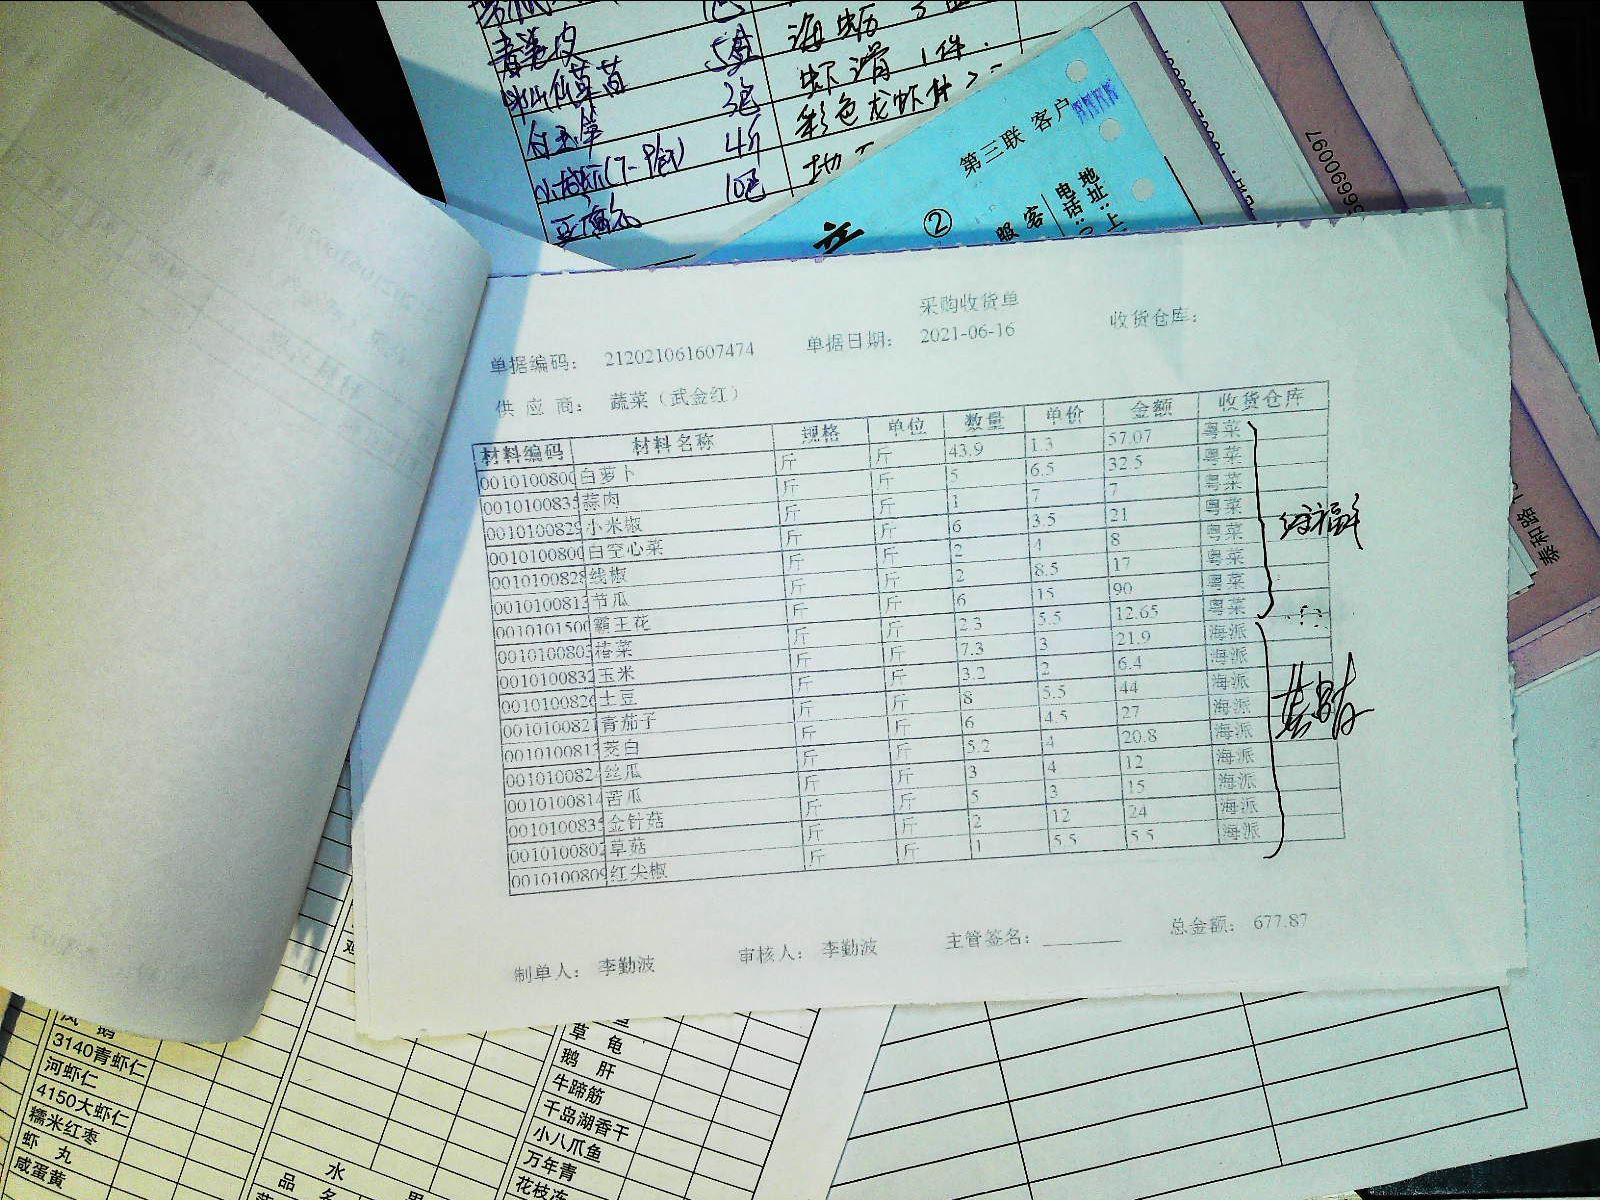 青笋皮 5盒 海蛎
水仙草苗 3包 虾滑 1件
白玉笋 4斤 彩色龙虾片
10包
豆腐衣
第三联 客户
②
服 客
地址:上
电话:
泰和路
采购收货单
单据编码: 212021061607474 单据日期: 2021-06-16 收货仓库:
供 应 商: 蔬菜（武金红）
材料编码 材料名称 规格 单位 数量 单价 金额 收货仓库
0010100800 白萝卜 斤 斤 43.9 1.3 57.07 粤菜
0010100835 蒜肉 斤 斤 5 6.5 32.5 粤菜
0010100829 小米椒 斤 斤 1 7 7 粤菜
0010100800 白空心菜 斤 斤 6 3.5 21 粤菜
0010100828 线椒 斤 斤 2 4 8 粤菜
0010100813 节瓜 斤 斤 2 8.5 17 粤菜
0010101500 霸王花 斤 斤 6 15 90 粤菜
0010100803 斤 斤 2.3 5.5 12.65 粤菜
0010100832 玉米 斤 斤 7.3 3 21.9 海派
0010100826 土豆 斤 斤 3.2 2 6.4 海派
0010100821 青茄子 斤 斤 8 5.5 44 海派
0010100813 茭白 斤 斤 6 4.5 27 海派
001010082 丝瓜 斤 斤 5.2 4 20.8 海派
0010100814 苦瓜 斤 斤 3 4 12 海派
0010100835 金针菇 斤 斤 5 3 15 海派
0010100802 草菇 斤 斤 2 12 24 海派
0010100809 红尖椒 斤 斤 1 5.5 5.5 海派
制单人: 李勤波 审核人: 李勤波 主管签名: 总金额: 677.87
3140青虾仁
河虾仁
4150大虾仁
糯米红枣
虾 丸
咸蛋黄
水 果
品 名
草 龟
鹅 肝
牛蹄筋
千岛湖香干
小八爪鱼
万年青
花枝冻